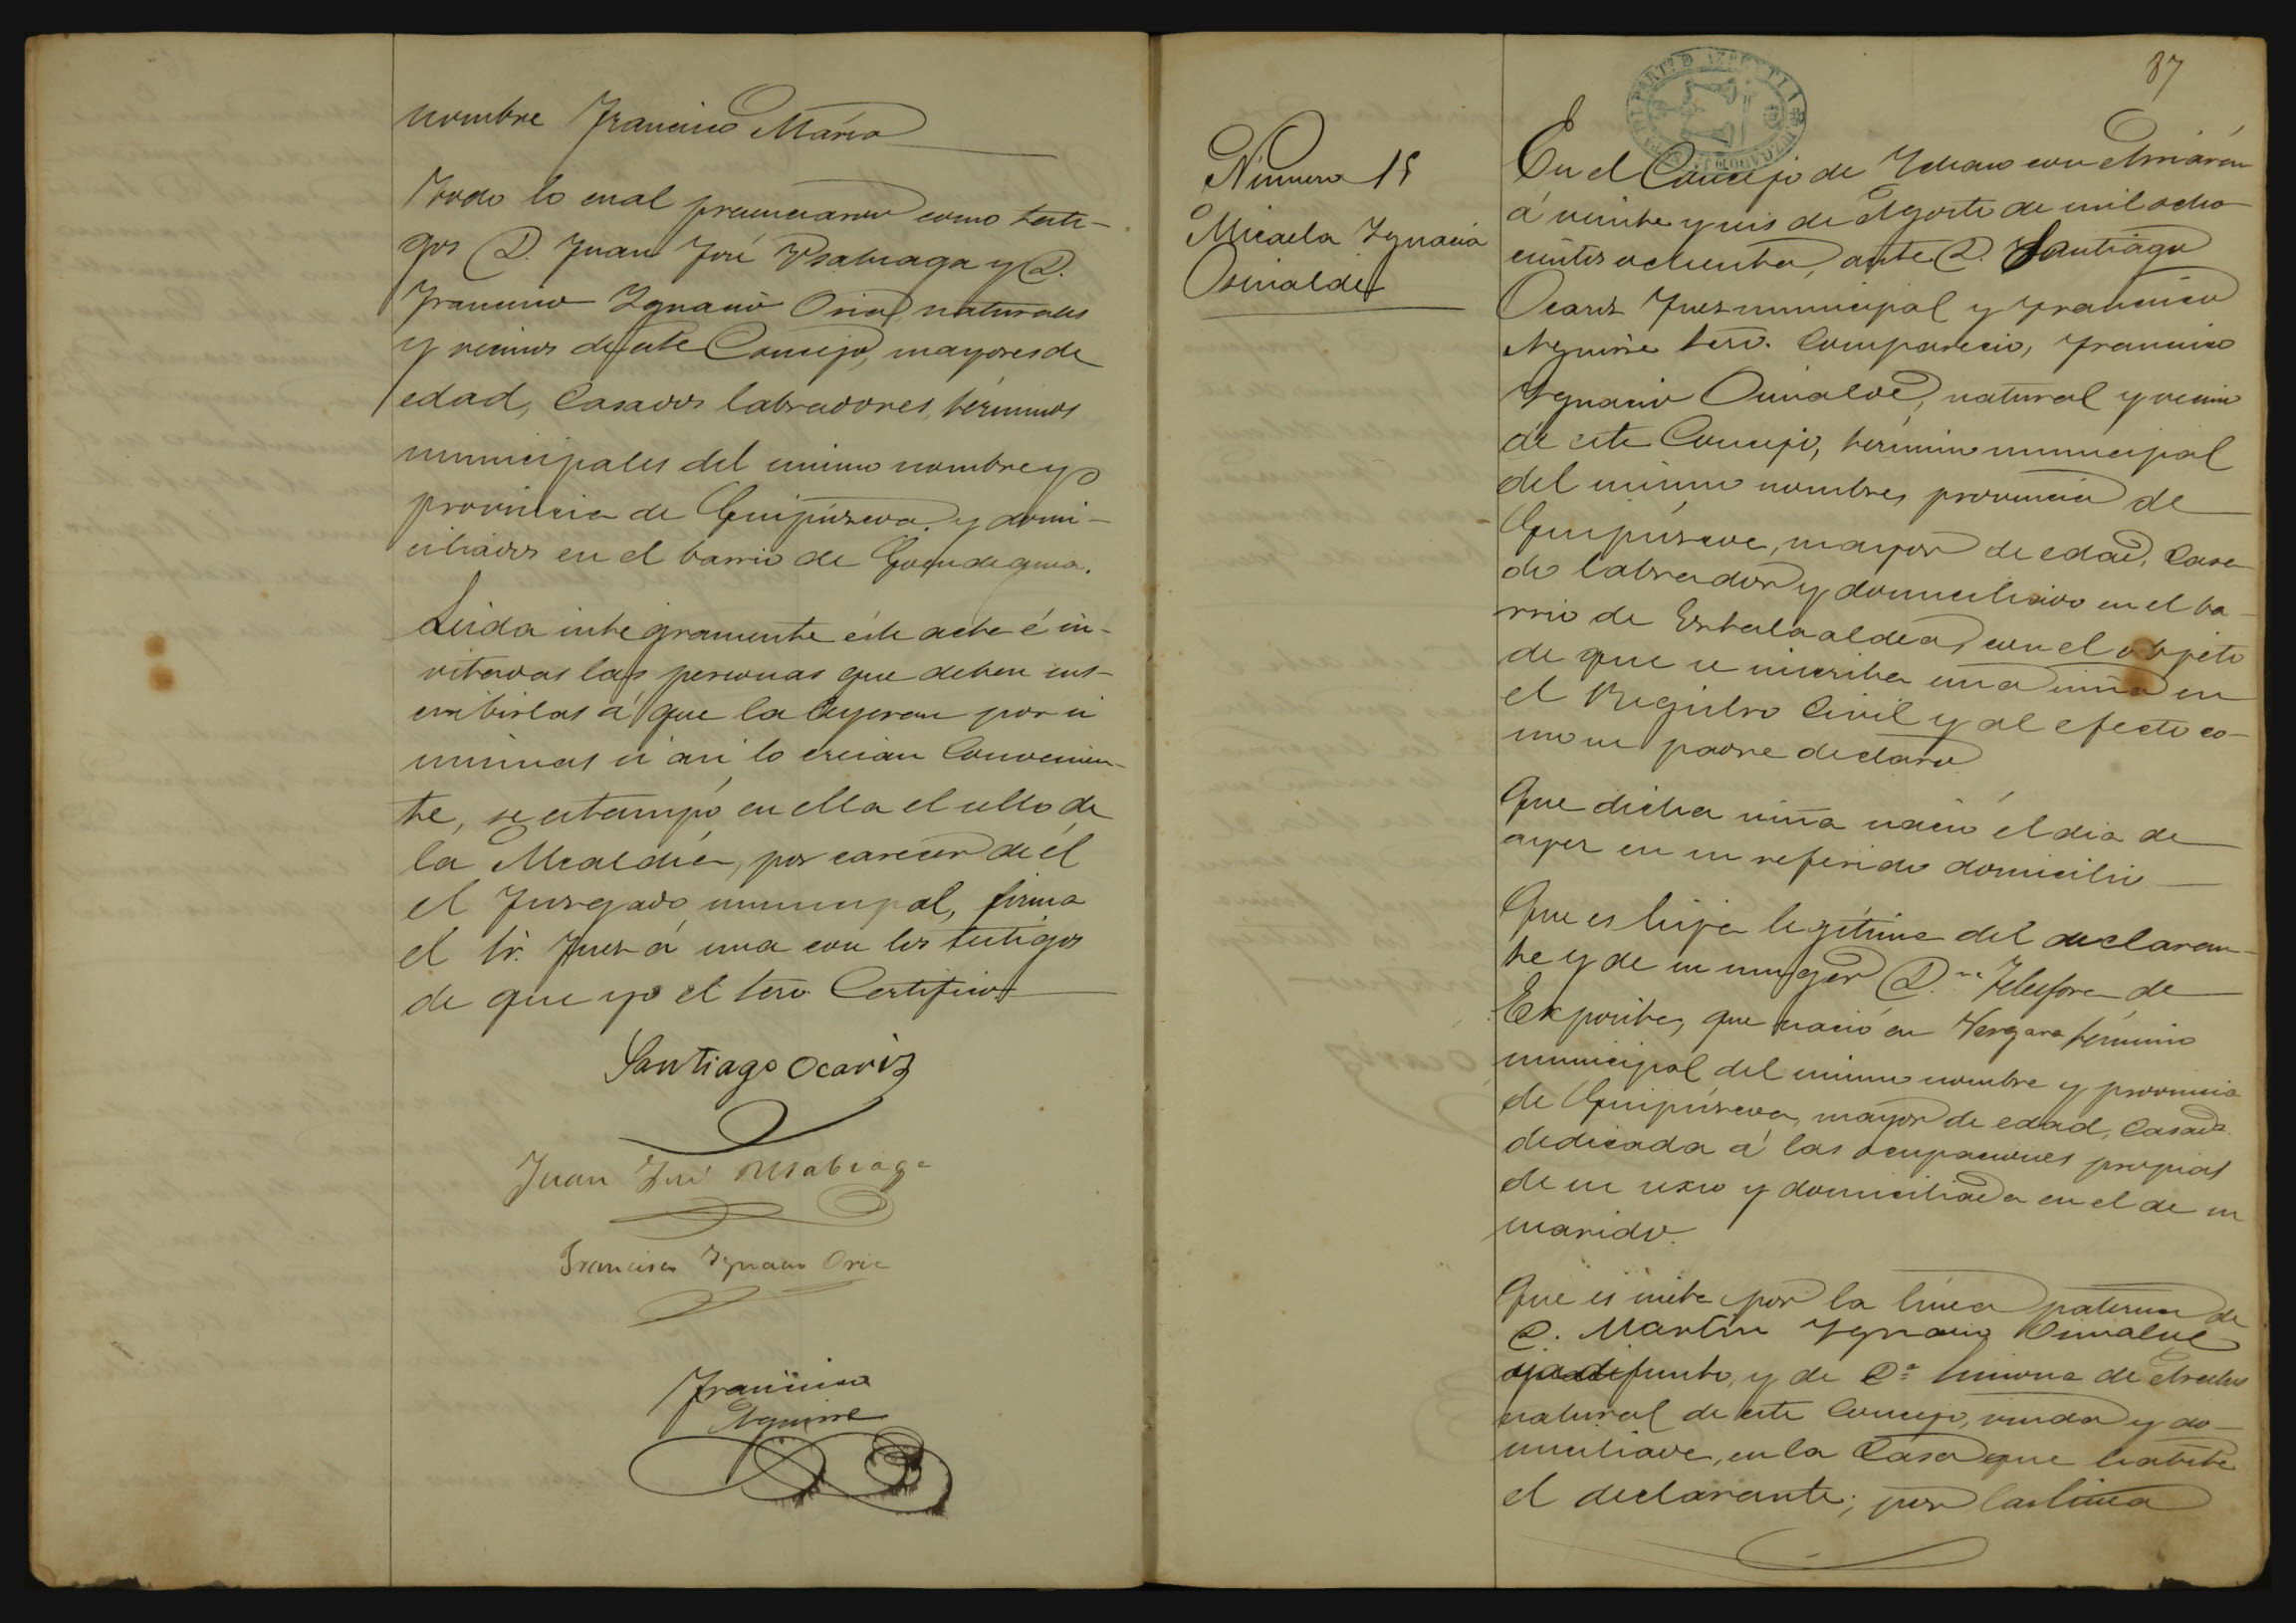 nombre Francisco María
Todo lo cual presenciaron como testi-
gos D. Juan José Usabiaga y D.
Francisco Ygnacio Oria naturales
y vecinos de este Concejo, mayores de
edad, Casados labradores, términos
municipales del mismo nombre y
provincia de Guipúzcoa y domi-
ciliados en el barrio de
Leida integramente éste acta é in-
vitadas las personas que deben sus-
cribirlas á que la leyeran por si
mismas si asi lo creian Convenien-
te, se estampó en ella el sello de
la Alcaldía, por carecer de él
el Juzgado municipal, firma
el Sr. Juez á una con los testigos
de que yo el Srio. Certifico
Santiago Ocariz
Juan José Usabiaga
Francisco Ygnacio Oria
Francisco
Aguirre
87
PARTº D AZPEITIA
Número 15
Micaela Ygnacia
Osinalde
En el Concejo de Ydiazo
á veinte y seis de Agosto de mil ocho
cientos ochenta, ante D. Santiago
Ocariz Juez municipal y Francisco
Aguirre Srio. Comparecio, Francisco
Ygnacio Osinalde, natural y vecino
de este Concejo, término municipal
del mismo nombre, provincia de
Guipúzcoa, mayor de edad, Casa
do labrador y domiciliado en el ba-
rrio de Ertalaaldea, con el objeto
de que se inscriba una niña en
el Registro Civil y al efecto co-
mo su padre declaro
Que dicha niña nació el dia de
ayer en su referido domicilio
Que es hija legítima del declaran-
te y de su muger D.ña Telesfora de
Exposito, que nació en Vergara término
municipal del mismo nombre y provincia
de Guipúzcoa, mayor de edad, Casada
dedicada á las ocupaciones propias
de su sexo y domiciliada en el de su
marido.
Que es nieta por la línea paterna de
D. Martin Ygnacio Osinalde
ya difunto, y de Dª Simona de
natural de este Concejo, viuda y do-
miciliada, en la Casa que habita
el declarante; por la línea